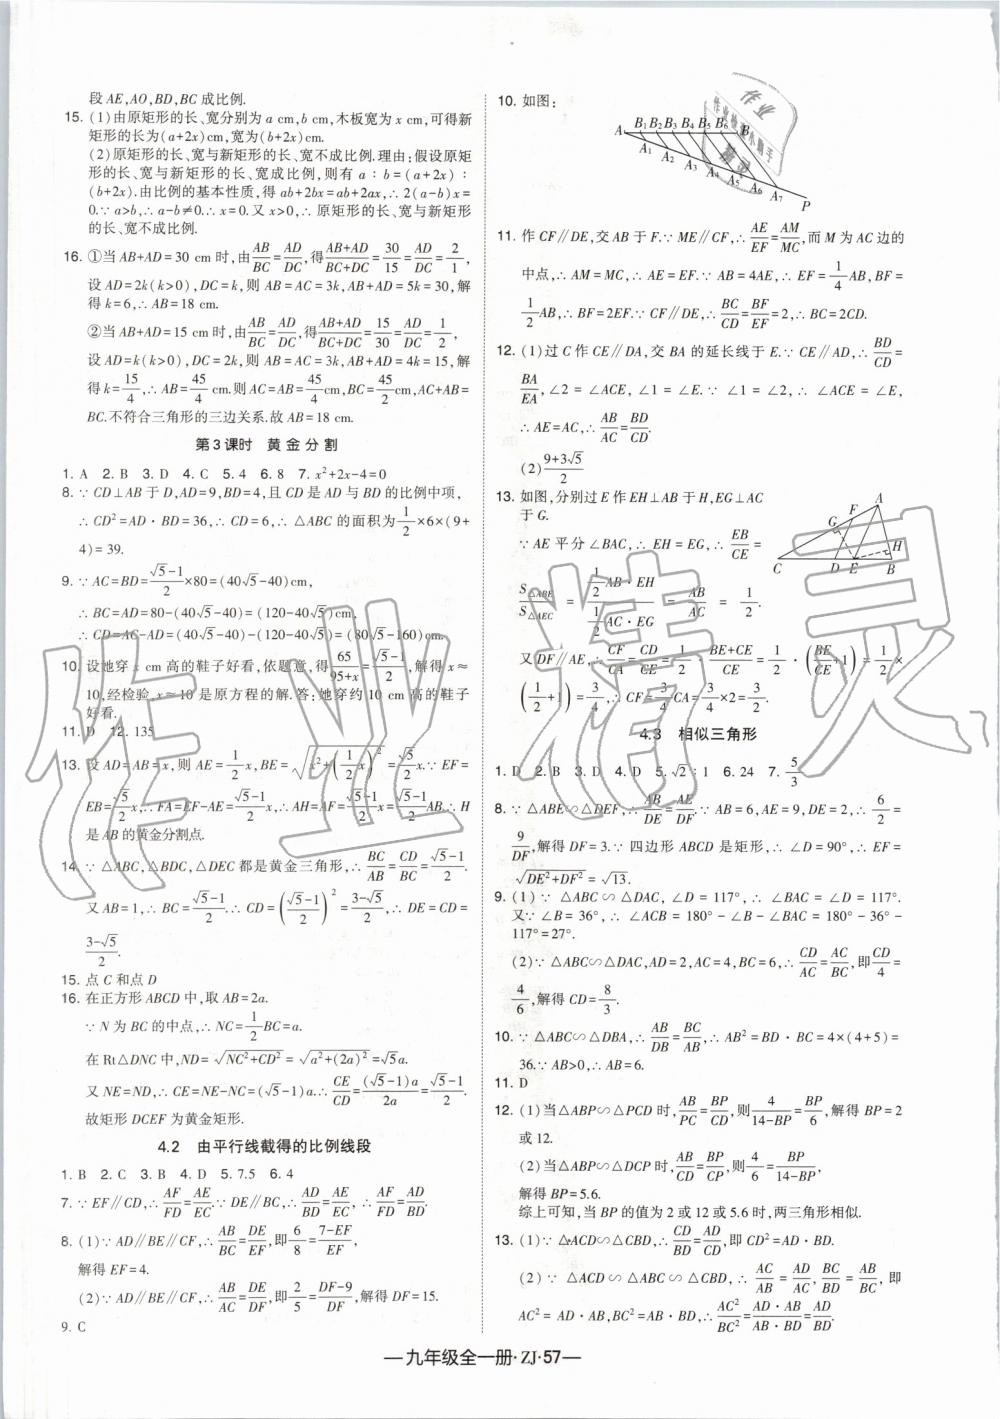 段 AE,AO,BD,BC 成比例.
15. (1)由原矩形的长、宽分别为 a cm,b cm,木板宽为 x cm,可得新
矩形的长为(a+2x)cm,宽为(b+2x)cm.
(2)原矩形的长、宽与新矩形的长、宽不成比例.理由:假设原矩
形的长、宽与新矩形的长、宽成比例,则有 a∶b=(a+2x)∶
(b+2x).由比例的基本性质,得 ab+2bx=ab+2ax,∴2(a-b)x=
0.∵a>b,∴a-b≠0.∴x=0.又 x>0,∴原矩形的长、宽与新矩形
的长、宽不成比例.
16. ①当 AB+AD=30 cm 时,由AB/BC=AD/DC,得(AB+AD)/(BC+DC)=30/15=AD/DC=2/1,
设 AD=2k(k>0),DC=k,则 AB=AC=3k,AB+AD=5k=30,解
得 k=6,∴AB=18 cm.
②当 AB+AD=15 cm 时,由AB/BC=AD/DC,得(AB+AD)/(BC+DC)=15/30=AD/DC=1/2,
设 AD=k(k>0),DC=2k,则 AB=AC=3k,AB+AD=4k=15,解
得 k=15/4,∴AB=45/4 cm.则 AC=AB=45/4 cm,BC=45/2 cm,AC+AB=
BC.不符合三角形的三边关系.故 AB=18 cm.
第 3 课时 黄金分割
1. A 2. B 3. D 4. C 5. 4 6. 8 7. x²+2x-4=0
8. ∵CD⊥AB 于 D,AD=9,BD=4,且 CD 是 AD 与 BD 的比例中项,
∴CD²=AD·BD=36,∴CD=6,∴△ABC 的面积为1/2×6×(9+
4)=39.
9. ∵AC=BD=(√5-1)/2×80=(40√5-40)cm,
∴BC=AD=80-(40√5-40)=(120-40√5)cm.
∴CD=AC-AD=(40√5-40)-(120-40√5)=(80√5-160)cm.
10. 设她穿 x cm 高的鞋子好看,依题意,得65/(95+x)=(√5-1)/2,解得 x≈
10,经检验,x≈10 是原方程的解.答:她穿约 10 cm 高的鞋子
好看.
11. D 12. 135
13. 设 AD=AB=x,则 AE=1/2x,BE=√(x²+(1/2x)²)=√5/2x.∵EF=
EB=√5/2x,∴FA=EF-AE=(√5-1)/2x,∴AH=AF=(√5-1)/2x=(√5-1)/2AB.∴H
是 AB 的黄金分割点.
14. ∵△ABC,△BDC,△DEC 都是黄金三角形,∴BC/AB=CD/BC=(√5-1)/2.
又 AB=1,∴BC=(√5-1)/2.∴CD=((√5-1)/2)²=(3-√5)/2,∴DE=CD=
(3-√5)/2.
15. 点 C 和点 D
16. 在正方形 ABCD 中,取 AB=2a.
∵N 为 BC 的中点,∴NC=1/2BC=a.
在 Rt△DNC 中,ND=√(NC²+CD²)=√(a²+(2a)²)=√5a.
又 NE=ND,∴CE=NE-NC=(√5-1)a.∴CE/CD=(√5-1)a/2a=(√5-1)/2.
故矩形 DCEF 为黄金矩形.
4.2 由平行线截得的比例线段
1. B 2. C 3. B 4. D 5. 7.5 6. 4
7. ∵EF∥CD,∴AF/FD=AE/EC.∵DE∥BC,∴AD/BD=AE/EC,∴AF/FD=AD/BD.
8. (1)∵AD∥BE∥CF,∴AB/BC=DE/EF,即6/8=(7-EF)/EF,
解得 EF=4.
(2)∵AD∥BE∥CF,∴AB/AC=DE/DF,即2/5=(DF-9)/DF,解得 DF=15.
9. C
10. 如图:
A B₁ B₂ B₃ B₄ B₅ B₆ B
A₁ A₂ A₃ A₄ A₅ A₆ A₇ P
11. 作 CF∥DE,交 AB 于 F.∵ME∥CF,∴AE/EF=AM/MC,而 M 为 AC 边的
中点,∴AM=MC,∴AE=EF.∵AB=4AE,∴EF=1/4AB,BF=
1/2AB,∴BF=2EF.∵CF∥DE,∴BC/CD=BF/EF=2,∴BC=2CD.
12. (1)过 C 作 CE∥DA,交 BA 的延长线于 E.∵CE∥AD,∴BD/CD=
BA/EA,∠2=∠ACE,∠1=∠E.∵∠1=∠2,∴∠ACE=∠E,
∴AE=AC,∴AB/AC=BD/CD.
(2)(9+3√5)/2
13. 如图,分别过 E 作 EH⊥AB 于 H,EG⊥AC
于 G.
∵AE 平分∠BAC,∴EH=EG,∴EB/CE=
S△ABE/S△AEC=(1/2AB·EH)/(1/2AC·EG)=AB/AC=1/2.
又 DF∥AE,∴CF/CA=CD/CE=1/2·(BE+CE)/CE=1/2·(BE/CE+1)=1/2×
(1/2+1)=3/4,∴CF=3/4CA=3/4×2=3/2.
A F G H C D E B
4.3 相似三角形
1. D 2. B 3. D 4. D 5. √2∶1 6. 24 7. 5/3
8. ∵△ABE∽△DEF,∴AB/DE=AE/DF.∵AB=6,AE=9,DE=2,∴6/2=
9/DF,解得 DF=3.∵四边形 ABCD 是矩形,∴∠D=90°,∴EF=
√(DE²+DF²)=√13.
9. (1)∵△ABC∽△DAC,∠D=117°,∴∠BAC=∠D=117°.
又∵∠B=36°,∴∠ACB=180°-∠B-∠BAC=180°-36°-
117°=27°.
(2)∵△ABC∽△DAC,AD=2,AC=4,BC=6,∴CD/AC=AC/BC,即CD/4=
4/6,解得 CD=8/3.
10. ∵△ABC∽△DBA,∴AB/DB=BC/AB,∴AB²=BD·BC=4×(4+5)=
36.∵AB>0,∴AB=6.
11. D
12. (1)当△ABP∽△PCD 时,AB/PC=BP/CD,则4/(14-BP)=BP/6,解得 BP=2
或 12.
(2)当△ABP∽△DCP 时,AB/CD=BP/CP,则4/6=BP/(14-BP),
解得 BP=5.6.
综上可知,当 BP 的值为 2 或 12 或 5.6 时,两三角形相似.
13. (1)∵△ACD∽△CBD,∴CD/BD=AD/CD,即 CD²=AD·BD.
(2)∵△ACD∽△ABC∽△CBD,∴AC/AB=AD/AC,BC/BD=AB/BC,即
AC²=AD·AB,BC²=AB·BD,∴AC²/BC²=(AD·AB)/(AB·BD)=AD/BD.
—九年级全一册·ZJ·57—
作业精灵